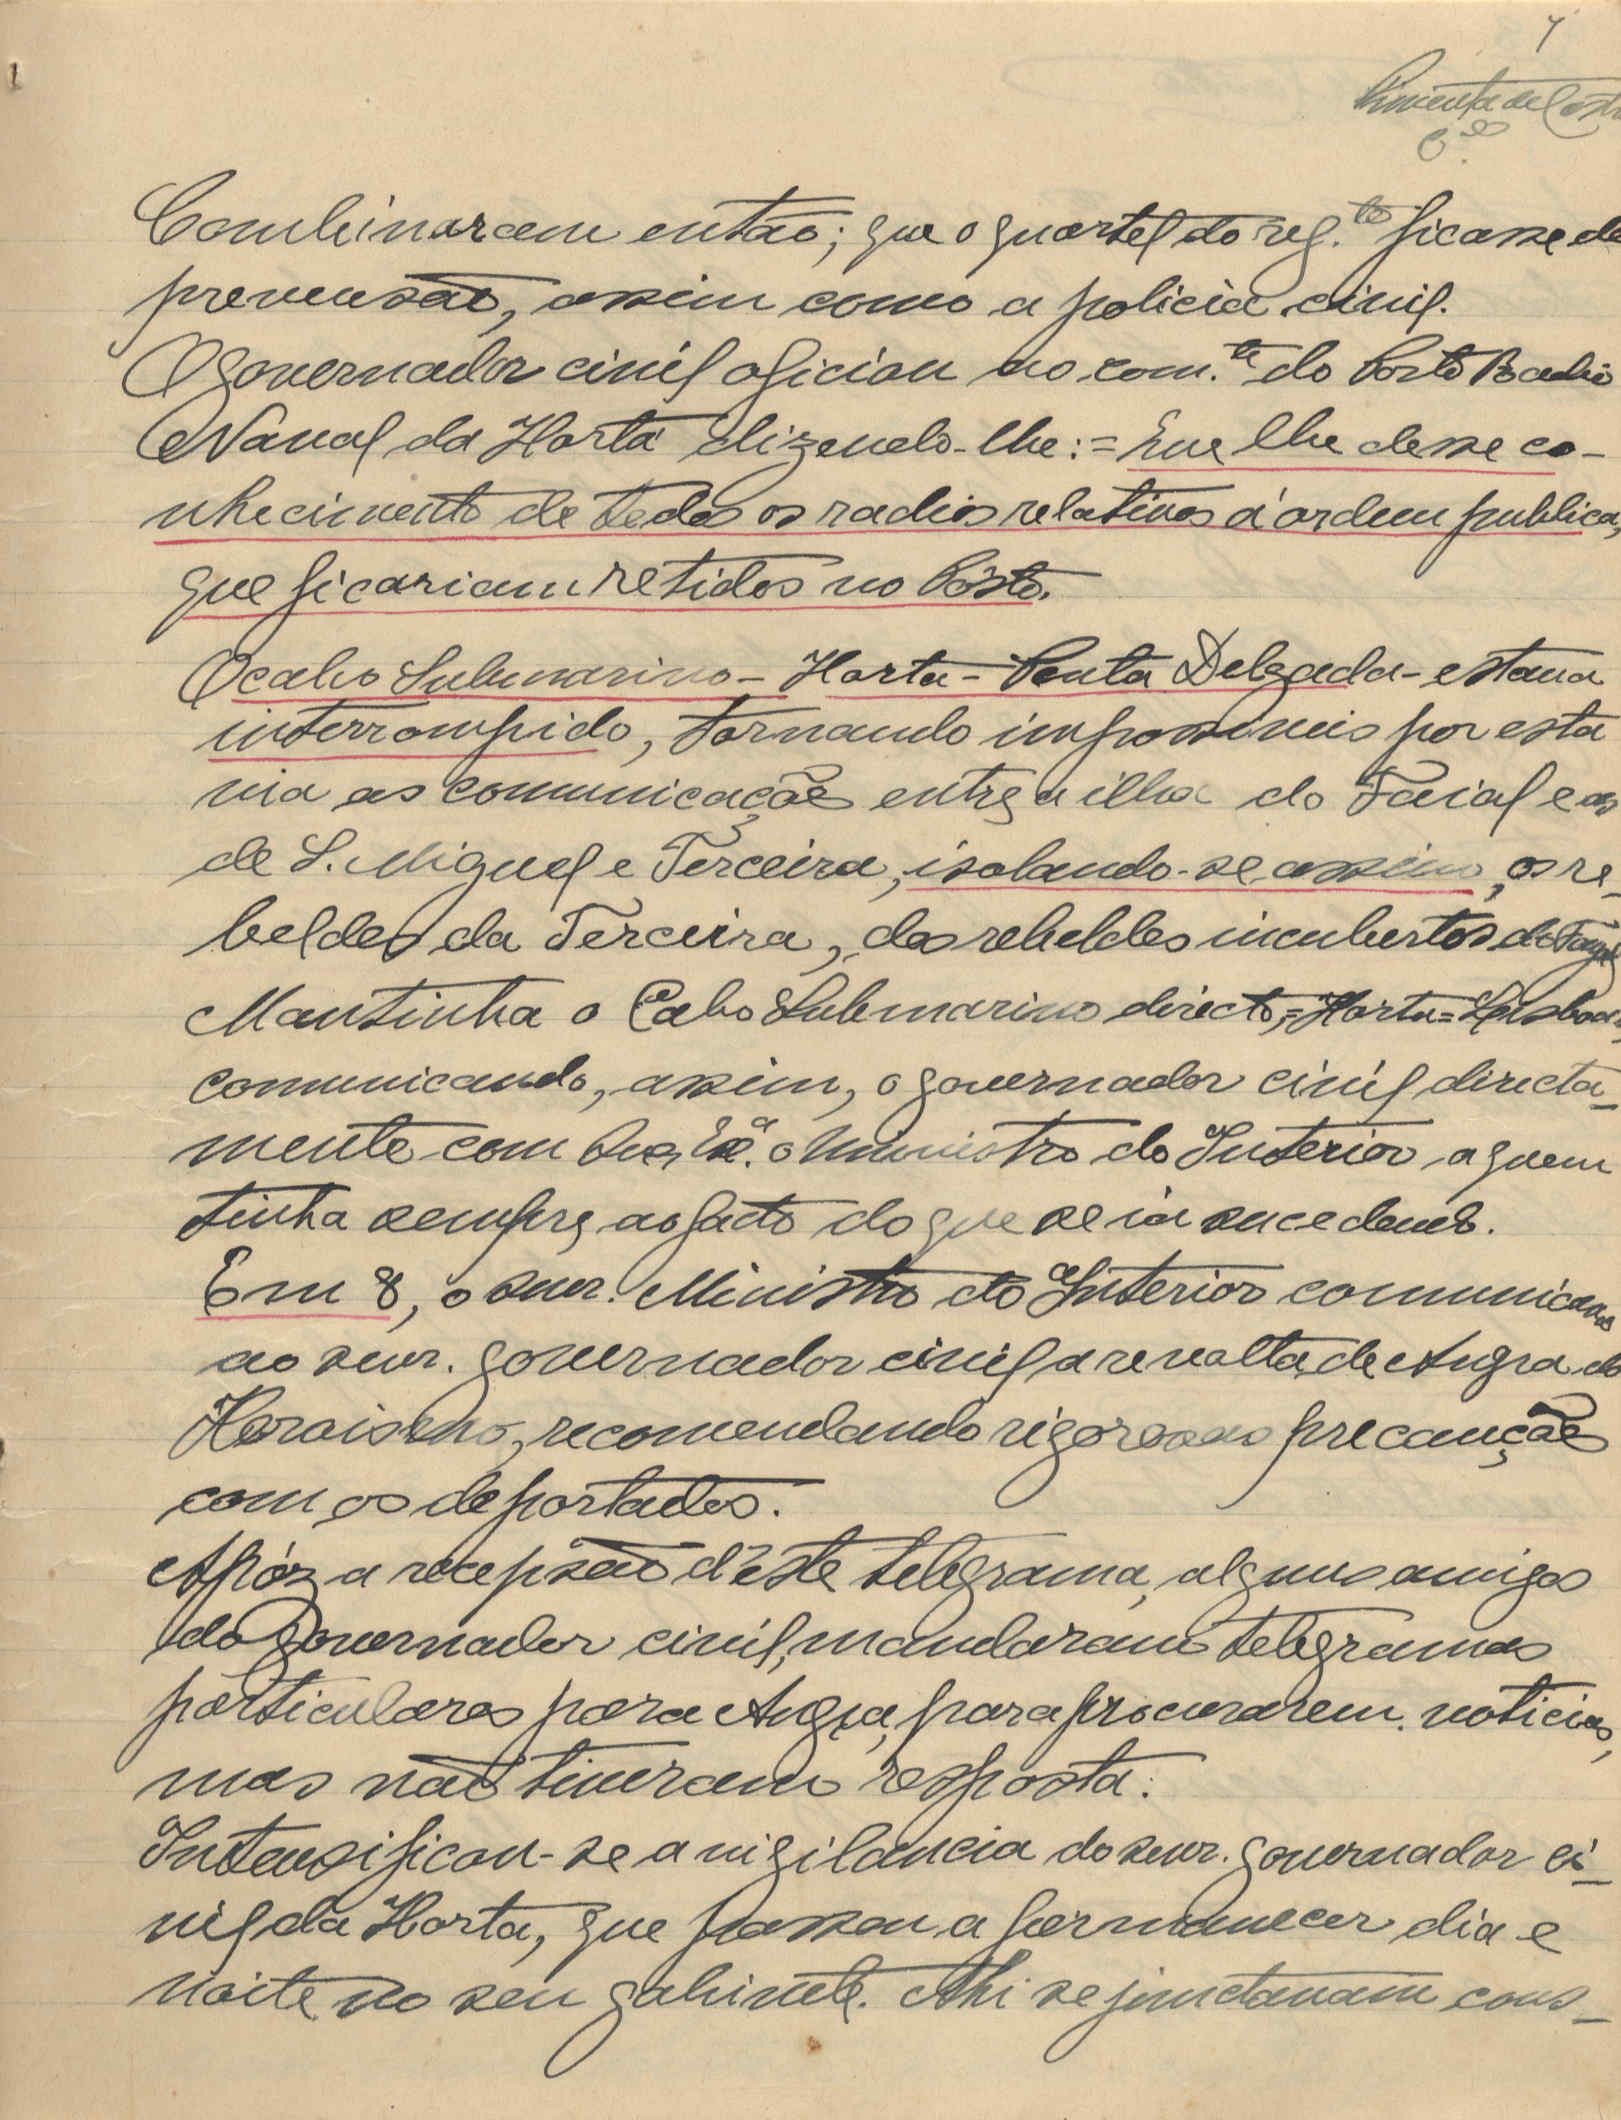 Pimenta de Castro
Combinaram então; que o quartel do reg.to ficasse de
prevensão, assim como a policia civil.
O governador civil oficiou ao com.te do Posto Radio
Naval da Horta dizendo-lhe:= Que lhe desse co-
nhecimento de todos os radios relativos á ordem publica,
que ficariam retidos no Pôsto.
O cabo Submarino - Horta - Ponta Delgada - estava
interrompido, tornando impossiveis por esta
via as comunicações entre a ilha do Faial e as
de S. Miguel e Terceira, isolando-se assim, os re-
beldes da Terceira, dos rebeldes incubertos do Fayal
Mantinha o Cabo Submarino directo,=Horta=Lisboa,
comunicando, assim, o governador civil directa-
mente com Sua Exª. o Ministro do Interior, a quem
tinha sempre ao facto do que se ia sucedendo.
Em 8, o snr. Ministro do Interior comunicava
ao snr. governador civil a revolta de Angra do
Heroismo, recomendando rigorosas precauções
com os deportados.
Apóz a recepsão d'êste telegrama, alguns amigos
do Governador civil, mandaram telegramas
particulares para Angra, para procurarem noticias,
mas não tiveram resposta.
Intensificou-se a vigilancia do snr. governador ci-
vil da Horta, que passou a permanecer dia e
noite no seu gabinete. Ahi se junctavam cons-